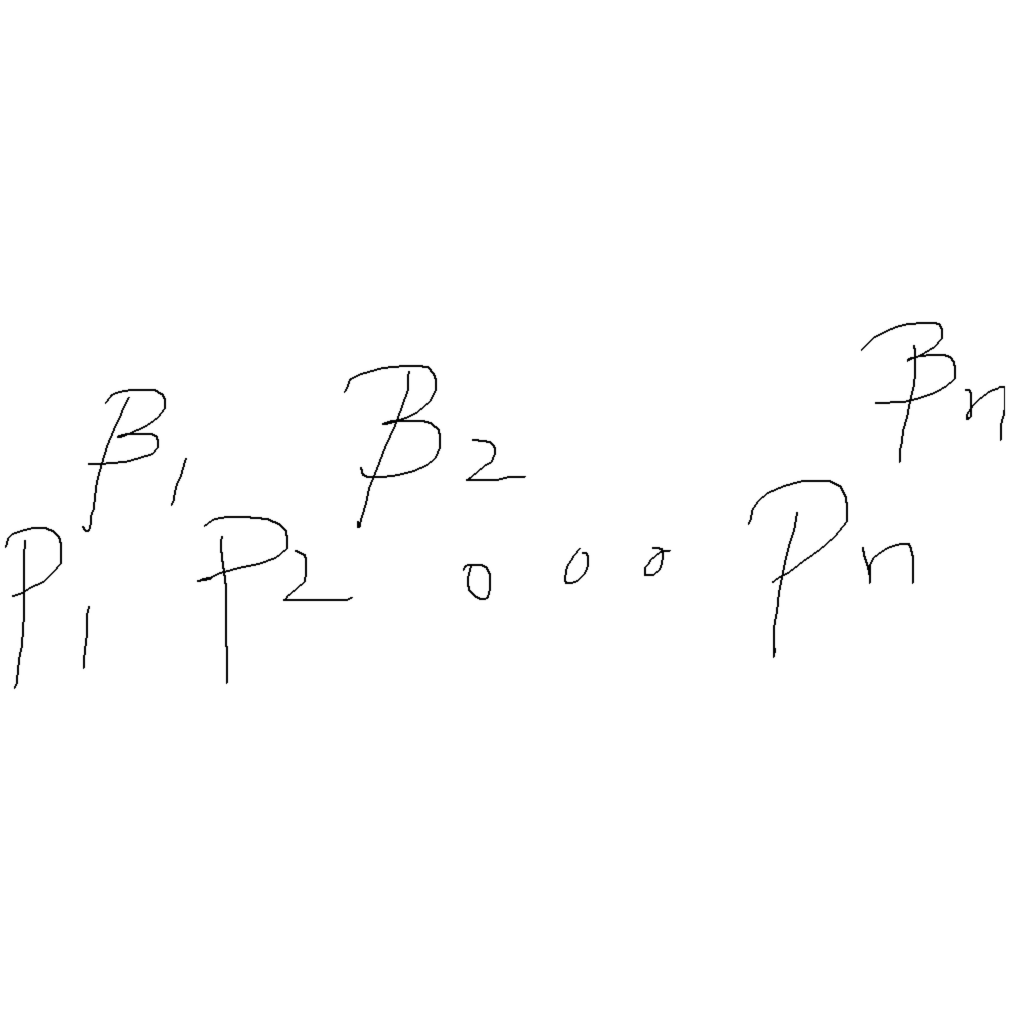 P₁^β₁ P₂^β₂ ∘ ∘ ∘ Pₙ^βₙ